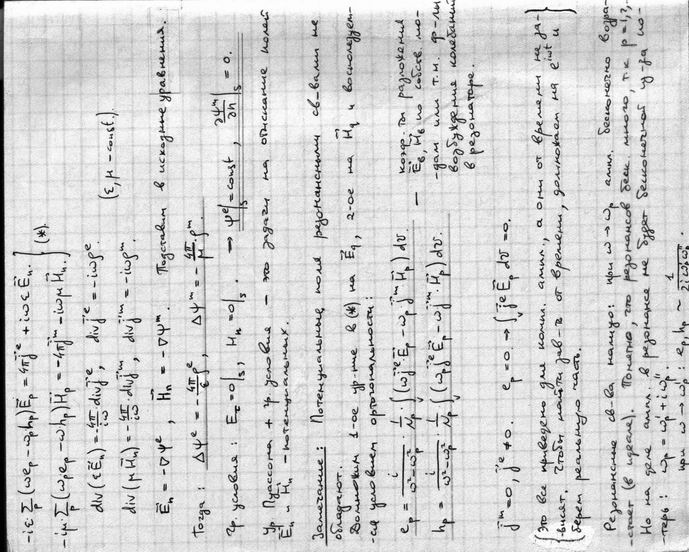 -iε∑ₚ(ωeₚ-ωₚhₚ)E⃗ₚ = 4πj⃗ᵉ + iωεE⃗ₙ. } (*)
-iμ∑ₚ(ωₚeₚ-ωhₚ)H⃗ₚ = -4πj⃗ᵐ - iωμH⃗ₙ.
div(εE⃗ₙ) = -4π/iω div j⃗ᵉ, div j⃗ᵉ = -iωρᵉ (ε, μ - const.)
div(μH⃗ₙ) = -4π/iω div j⃗ᵐ, div j⃗ᵐ = -iωρᵐ
E⃗ₙ = -∇ψᵉ, H⃗ₙ = -∇ψᵐ. Подставим в исходные уравнения.
Тогда: Δψᵉ = -4π/ε ρᵉ, Δψᵐ = -4π/μ ρᵐ.
Гр. условия: Eτ = 0|s, Hₙ = 0|s → ψᵉ|s = const, ∂ψᵐ/∂n|s = 0.
Ур. Пуассона + гр. условия - это задачи на отыскание полей
E⃗ₙ и H⃗ₙ - потенциальных.
Замечание: Потенциальные поля резонансными св-вами не
обладают.
Домножим 1-ое ур-ние в (*) на E⃗q, 2-ое на H⃗q и воспользуем-
-ся условием ортогональности:
eₚ = i/(ω²-ωₚ²) · 1/Nₚ ∫(ωj⃗ᵉE⃗ₚ - ωₚj⃗ᵐH⃗ₚ)dv. - коэф.-ты разложения
hₚ = i/(ω²-ωₚ²) · 1/Nₚ ∫(ωₚj⃗ᵉE⃗ₚ - ωj⃗ᵐH⃗ₚ)dv. по собств. мо-
-дам или т.н. ф-лы
возбуждения колебаний
в резонаторе.
j⃗ᵐ = 0, j⃗ᵉ ≠ 0. eₚ = 0. → ∫j⃗ᵉE⃗ₚdv = 0.
Это все приведено для компл. ампл., а они от времени не за-
-висят. Чтобы найти зав-ть от времени, домножаем на e^{iωt} и
берем реальную часть.
Резонансные св-ва налицо: при ω→ωₚ ампл. бесконечно возра-
-стает (в идеале). Понятно, что резонансов беск. много, т.к. p=1,2,
Но на деле ампл. в резонансе не будет бесконечной из-за по-
-терь: ωₚ = ωₚ' + iωₚ''.
при ω→ωₚ' : eₚ, hₚ ~ 1/2iωₚ'ωₚ''